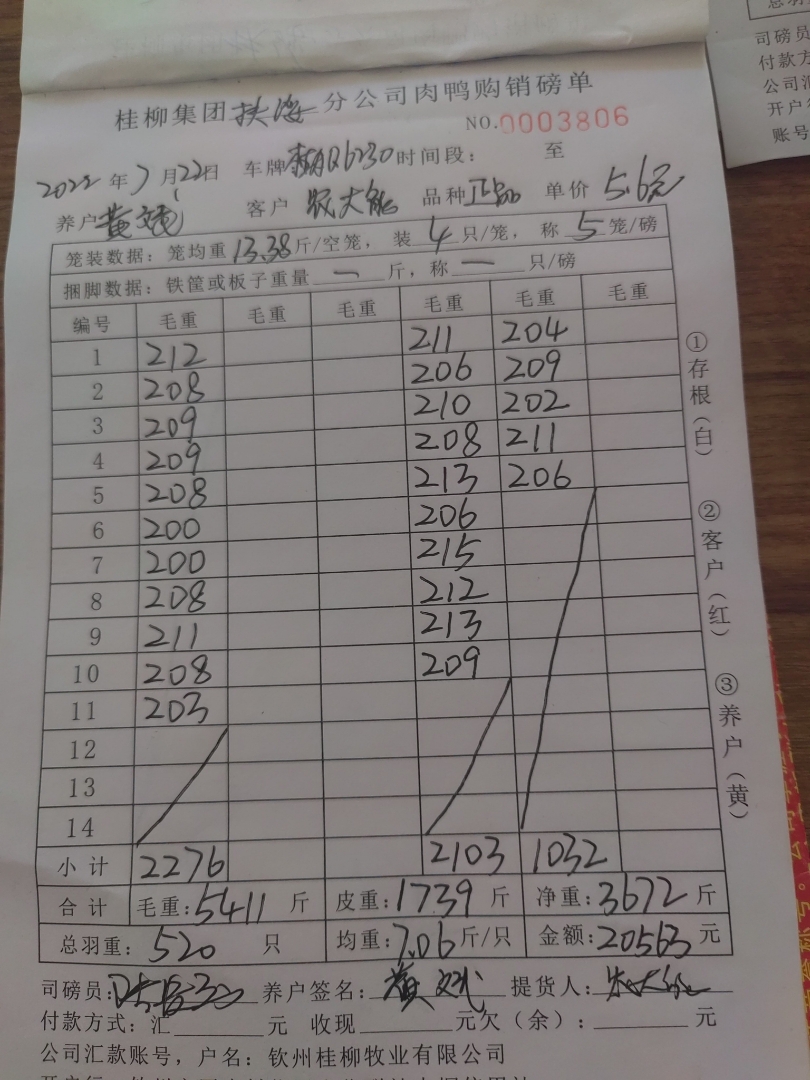 桂柳集团扶海分公司肉鸭购销磅单
NO.0003806
2022年7月22日 车牌 Q6230 时间段： 至
养户黄 客户 农大能 品种正品 单价 5.6元
笼装数据：笼均重13.38斤/空笼，装4只/笼，称5笼/磅
捆脚数据：铁筐或板子重量一斤，称一只/磅
编号 毛重 毛重 毛重 毛重 毛重 毛重
1 212 211 204
2 208 206 209
3 209 210 202
4 209 208 211
5 208 213 206
6 200 206
7 200 215
8 208 212
9 211 213
10 208 209
11 203
12
13
14
小计 2276 2103 1032
合计 毛重:5411斤 皮重:1739斤 净重:3672斤
总羽重: 520 只 均重:7.06斤/只 金额:20563元
司磅员: 养户签名: 黄 提货人:
付款方式：汇 元 收现 元欠（余）: 元
公司汇款账号，户名：钦州桂柳牧业有限公司
①存根（白）
②客户（红）
③养户（黄）
司磅员
付款方
公司汇
开户
账号